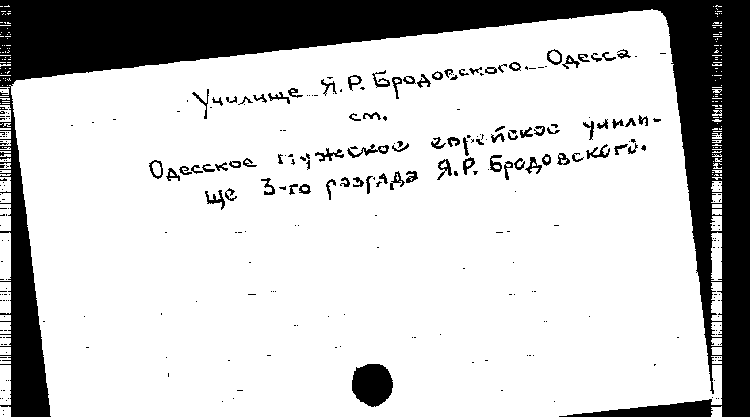 Училище Я.Р. Бродовского. Одесса
см.
Одесское мужское еврейское учили-
ще 3-го разряда Я.Р. Бродовского.